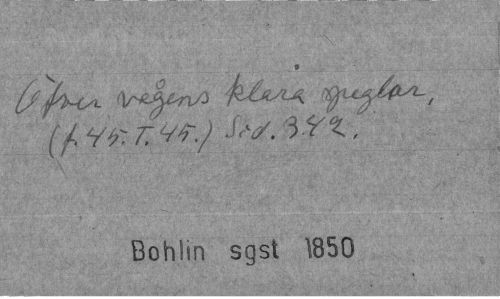 Öfver vågens klara speglar,
(f. 45. T. 45.) Sid. 342.
Bohlin sgst 1850